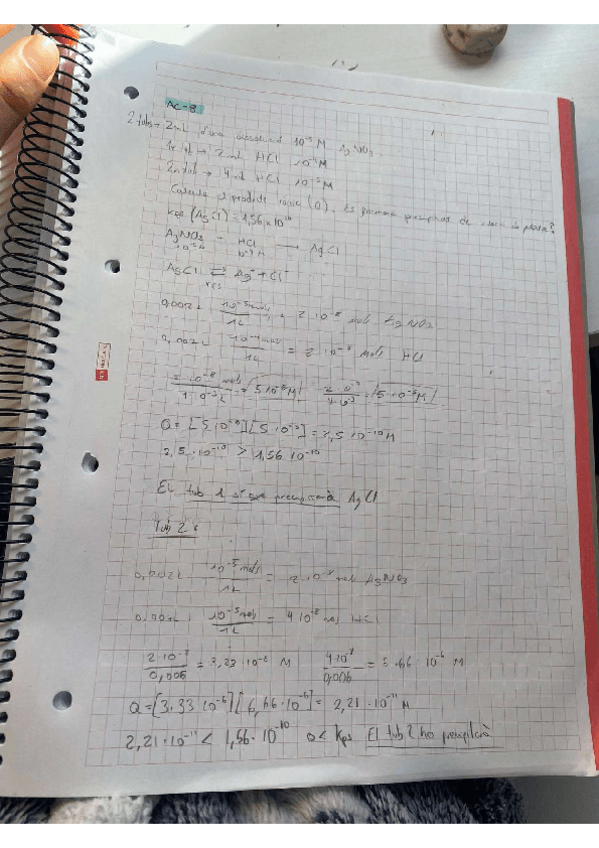 AC-3
2 tubs → 2 ml d'una dissolució 10⁻⁵ M AgNO₃
1r tub → 2 ml HCl 10⁻⁴ M
2n tub → 4 ml HCl 10⁻⁵ M
Calcula el producte iònic (Q). Es formarà precipitat de clorur de plata?
Kps (AgCl) = 1,56 × 10⁻¹⁰
AgNO₃ HCl → AgCl
AgCl ⇄ Ag⁺ + Cl⁻
0,002 L 10⁻⁵ mols / 1L = 2 · 10⁻⁸ mols AgNO₃
0,002 L / 1L = 2 · 10⁻⁷ mols HCl
2 · 10⁻⁸ mols = 5 · 10⁻⁶ M 2 · 10⁻⁷ = 5 · 10⁻⁵ M
2,5 · 10⁻¹⁰ > 1,56 · 10⁻¹⁰
El tub 1 sí que precipitarà AgCl
Tub 2:
0,002 L 10⁻⁵ mols / 1L = 2 · 10⁻⁸ mol AgNO₃
10⁻⁵ mols / 1L = 4 · 10⁻⁸ mols HCl
/ 0,006 = 3,33 · 10⁻⁶ M 4 · 10⁻⁸ / 0,006 = 6,66 · 10⁻⁶ M
Q = [3,33 · 10⁻⁶] [6,66 · 10⁻⁶] = 2,21 · 10⁻¹¹ M
2,21 · 10⁻¹¹ < 1,56 · 10⁻¹⁰ Q < Kps El tub 2 no precipitarà